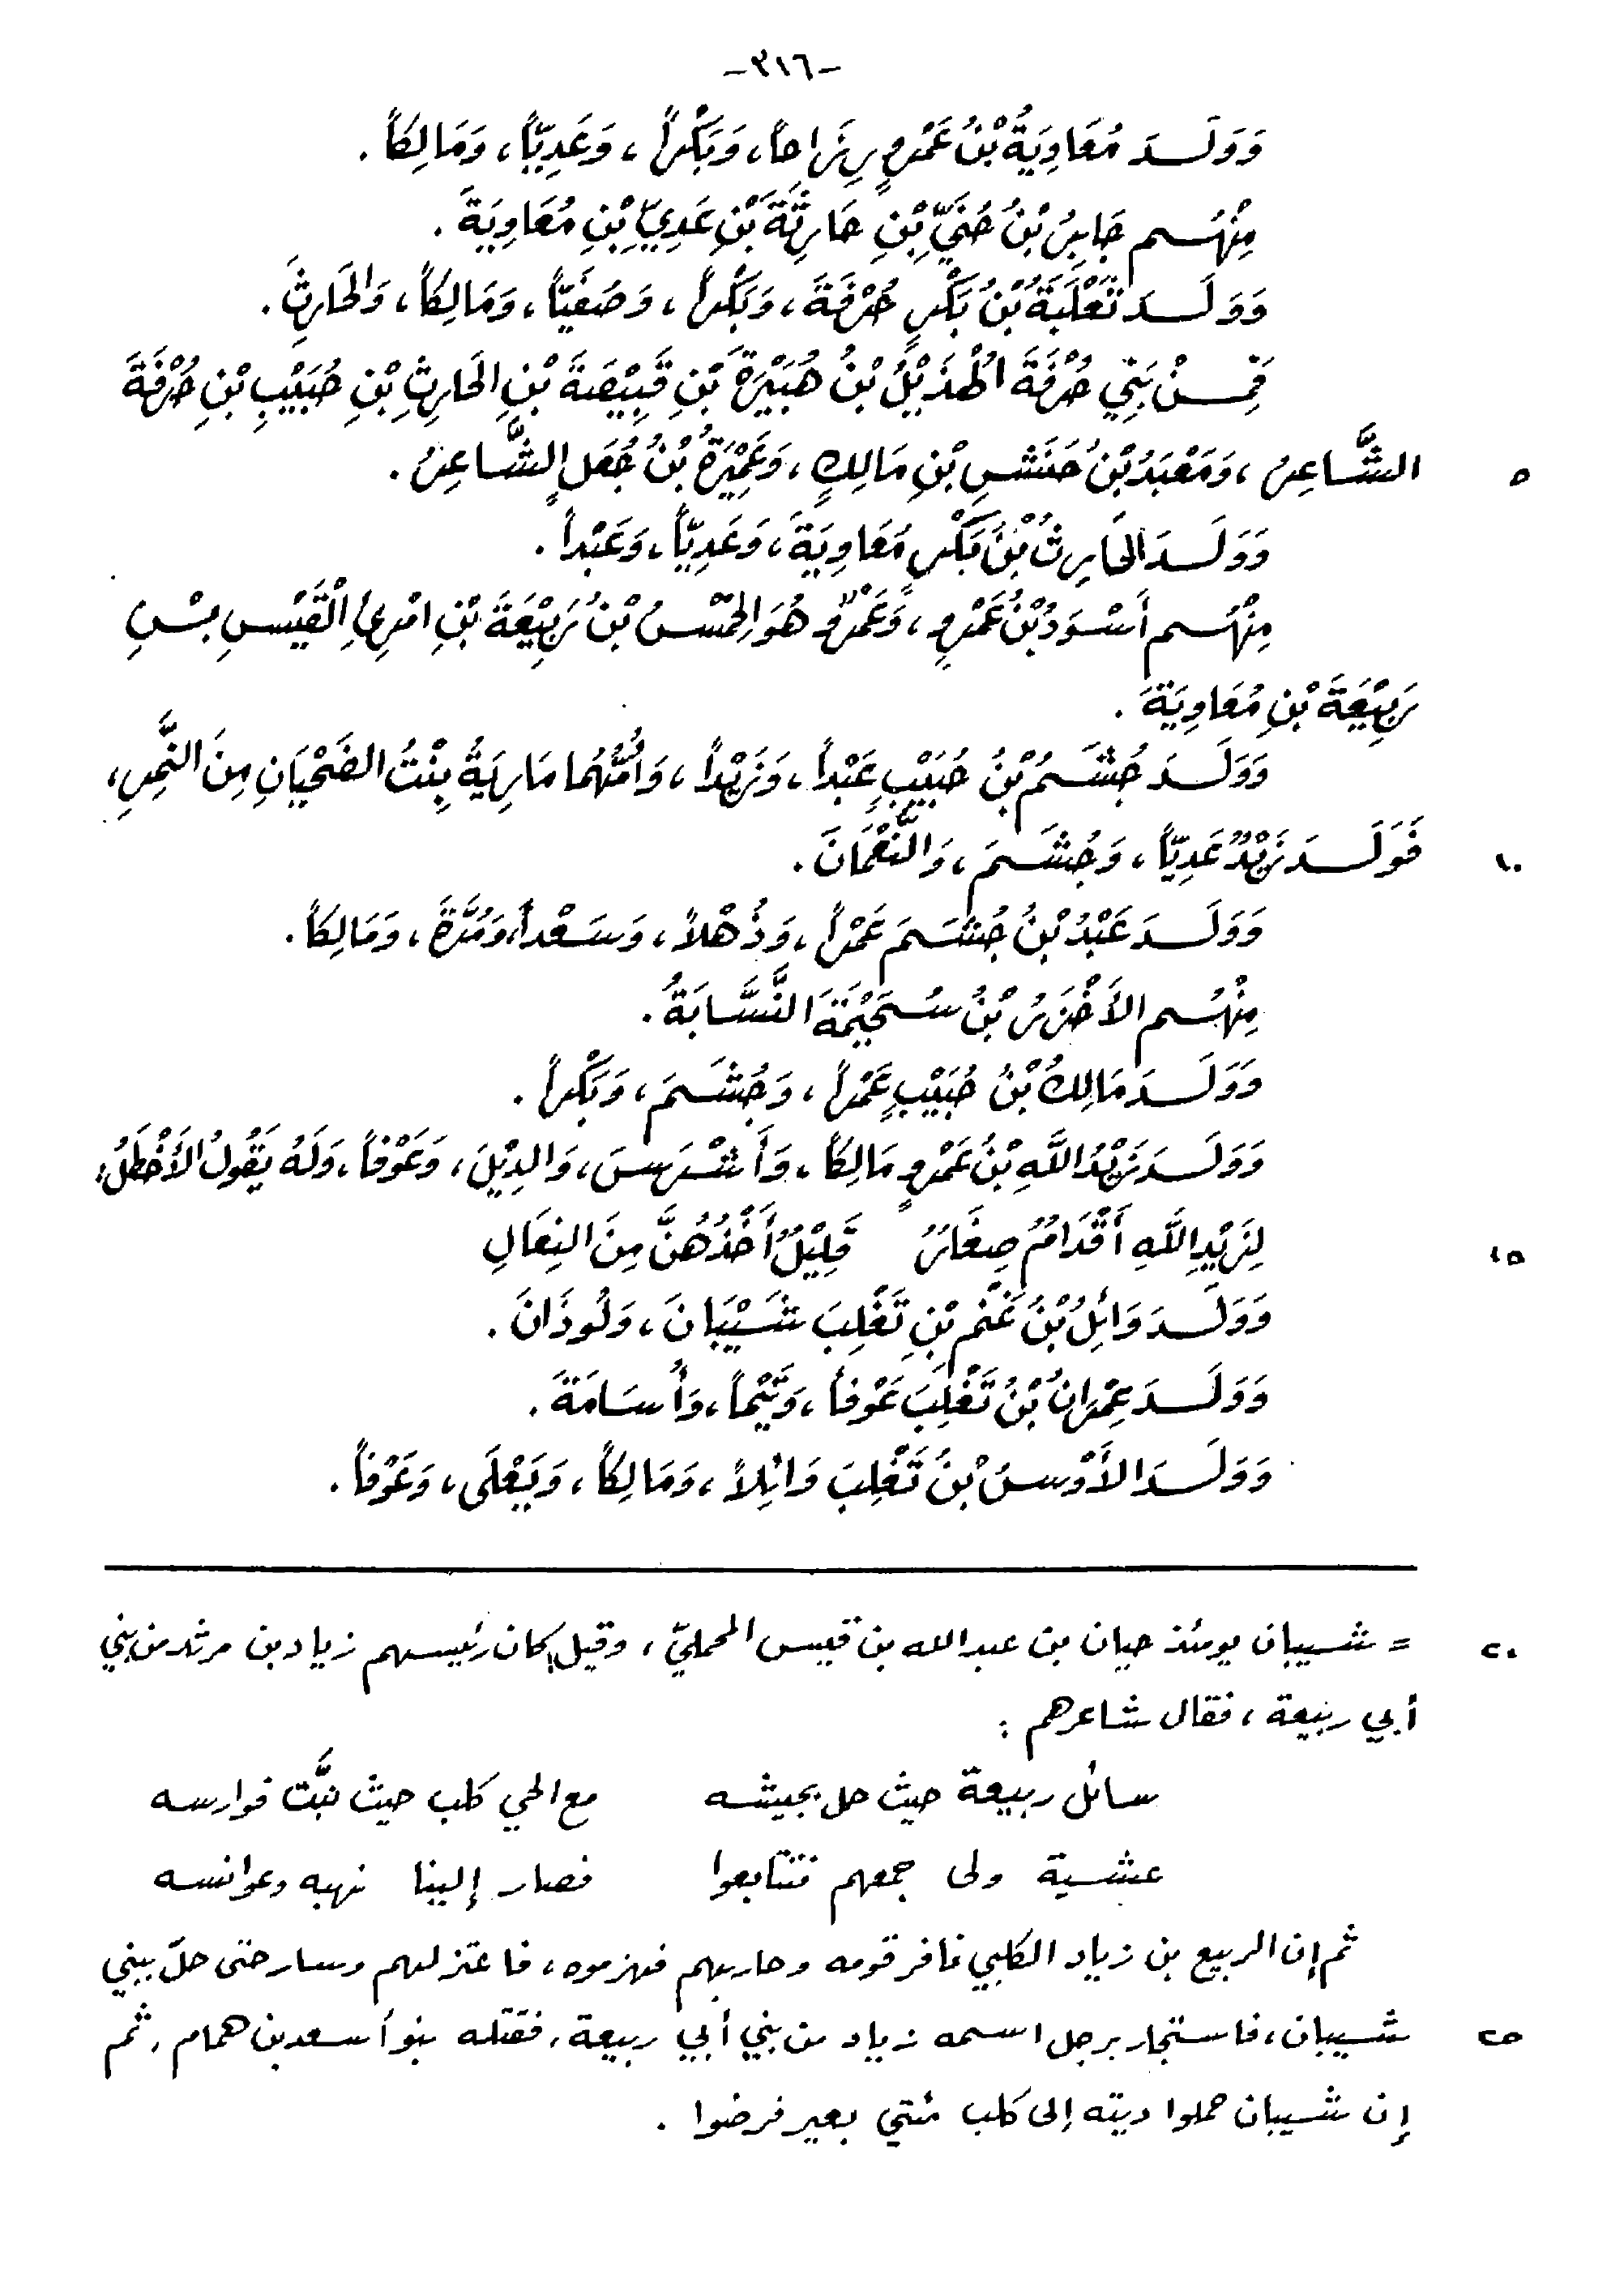 -٣١٦-
وَوَلَدَ مُعَاوِيَةُ بْنُ عَمْرٍو رِزَاحاً، وَبَكْراً، وَعَدِيّاً، وَمَالِكاً.
مِنْهُم جَابِرُ بْنُ حُنَيِّ بْنِ حَارِثَةَ بْنِ عَدِيِّ بْنِ مُعَاوِيَةَ.
وَوَلَدَ ثَعْلَبَةُ بْنُ بَكْرٍ حُرْفَةَ، وَبَكْراً، وَصَفِيّاً، وَمَالِكاً، وَالحَارِثَ.
فَمِنْ بَنِي حُرْفَةَ الْهُذَيْلُ بْنُ هُبَيْرَةَ بْنِ قَبِيْصَةَ بْنِ الحَارِثِ بْنِ حُبَيْبِ بْنِ حُرْفَةَ
٥ الشَّاعِرُ، وَمَعْبَدُ بْنُ حَنَشِ بْنِ مَالِكٍ، وَعَمِيْرَةُ بْنُ جُعَلٍ الشَّاعِرُ.
وَوَلَدَ الحَارِثُ بْنُ بَكْرٍ مُعَاوِيَةَ، وَعَدِيّاً، وَعَبْداً.
مِنْهُم أَسْوَدُ بْنُ عَمْرٍو، وَعَمْرٌو هُوَ الحِمْسُ بْنُ رَبِيْعَةَ بْنِ امْرِئِ الْقَيْسِ بْنِ
رَبِيْعَةَ بْنِ مُعَاوِيَةَ.
وَوَلَدَ جُشَمُ بْنُ حُبَيْبٍ عَبْداً، وَزَيْداً، وَأُمُّهُمَا مَارِيَةُ بِنْتُ الضَحْيَانِ مِنَ النَّمِرِ،
١٠ فَوَلَدَ زَيْدٌ عَدِيّاً، وَجُشَمَ، وَالنُّعْمَانَ.
وَوَلَدَ عَبْدُ بْنُ جُشَمَ عَمْراً، وَذُهْلاً، وَسَعْداً، وَمُرَّةَ، وَمَالِكاً.
مِنْهُم الأَخْزَرُ بْنُ سُحَيْمَةَ النَّسَّابَةُ.
وَوَلَدَ مَالِكُ بْنُ حُبَيْبٍ عَمْراً، وَجُشَمَ، وَبَكْراً.
وَوَلَدَ زَيْدُ اللَّهِ بْنُ عَمْرٍو مَالِكاً، وَأَشْرَسَ، وَالدِيْلَ، وَعَوْفاً، وَلَهُ يَقُولُ الأَخْطَلُ:
١٥ لِزَيْدِ اللَّهِ أَقْدَامٌ صِغَارُ قَلِيْلٌ أَخْذُهُنَّ مِنَ النِعَالِ
وَوَلَدَ وَائِلُ بْنُ غَنْمِ بْنِ تَغْلِبَ شَيْبَانَ، وَلُوذَانَ.
وَوَلَدَ عِمْرَانُ بْنُ تَغْلِبَ عَوْفاً، وَتَيْماً، وَأُسَامَةَ.
وَوَلَدَ الأَوْسُ بْنُ تَغْلِبَ وَائِلاً، وَمَالِكاً، وَيَعْلَى، وَعَوْفاً.
٢٠ = شيبان يومئذ حيان بن عبدالله بن قيس المحمليّ، وقيل كان رئيسهم زياد بن مرثد من بني
أبي ربيعة، فقال شاعرهم:
سائل ربيعة حيث حل بجيشه مع الحي كلب حيث لبَّت فوارسه
عشية ولى جمعهم فتتابعوا فصار إلينا نهبه وعوانسه
ثم إن الربيع بن زياد الكلبي نافر قومه وحاربهم فهزموه، فاعتزلهم وسار حتى حلّ ببني
٢٥ شيبان، فاستجار برجل اسمه زياد من بني أبي ربيعة، فقتله بنو أسعد بن همام، ثم
إن شيبان حملوا ديته إلى كلب مئتي بعير فرضوا.